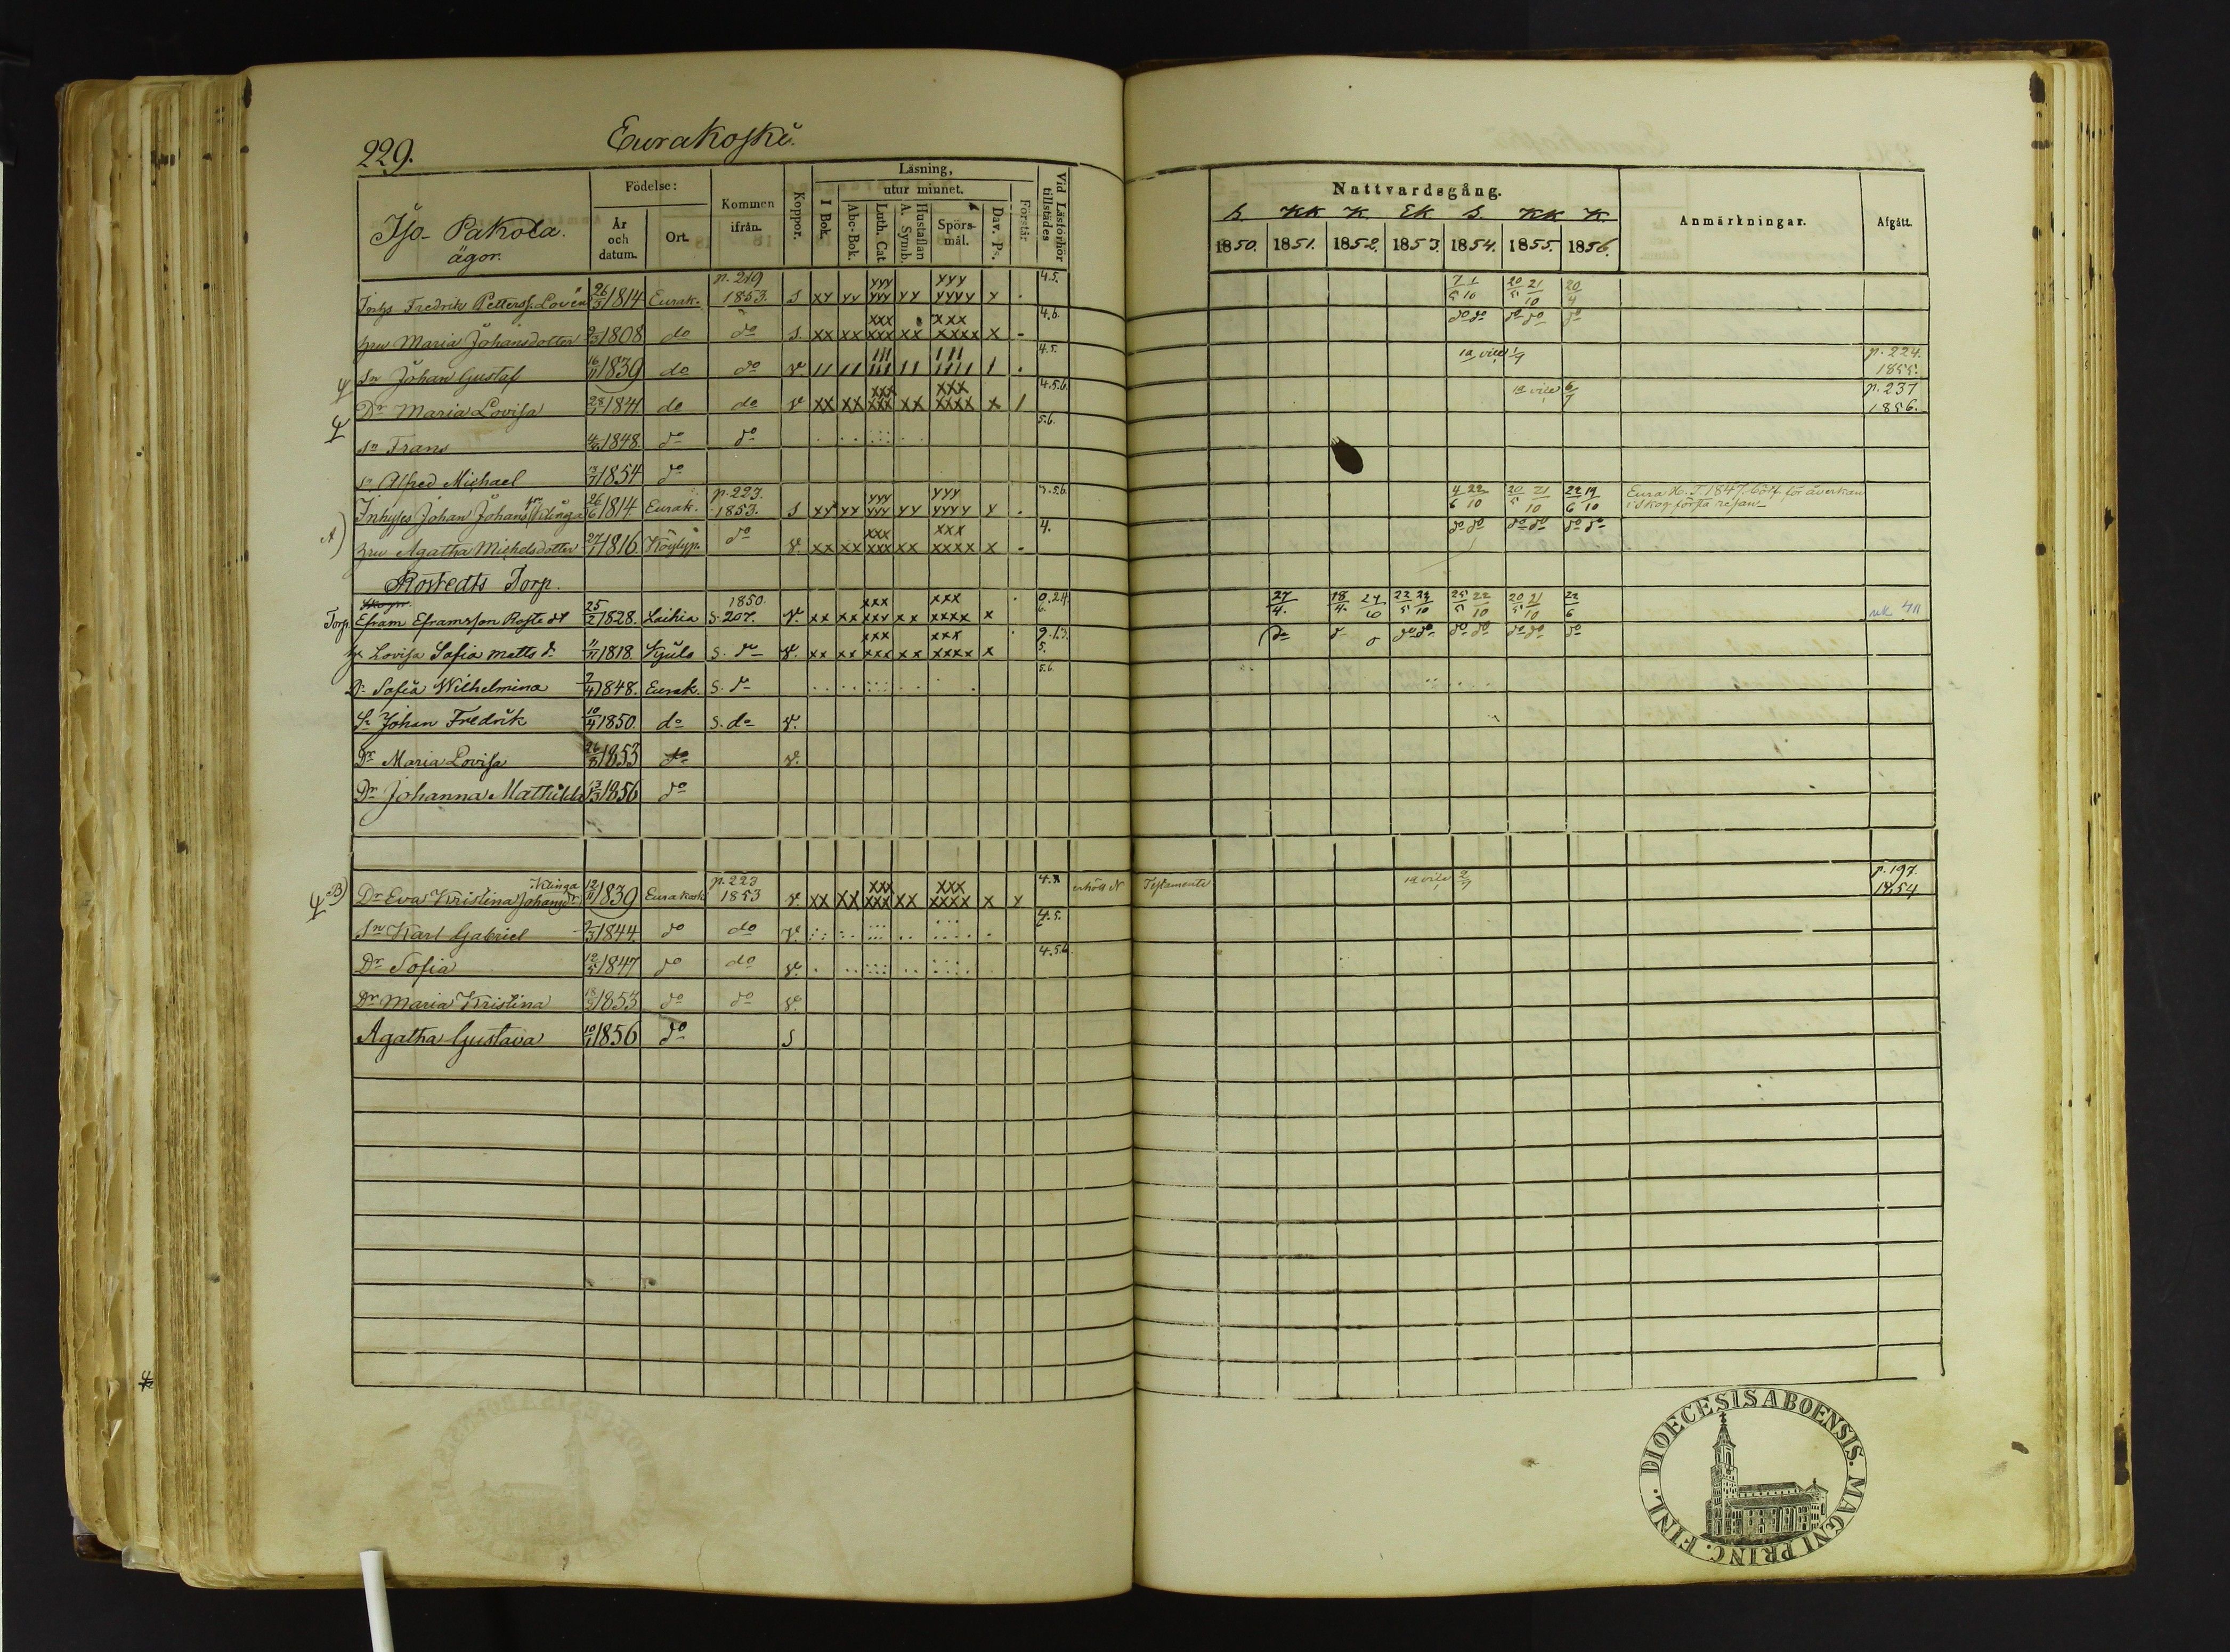 229. Eurakoski.
Iso-Pakola. ägor.
Födelse: År och datum. Ort. Kommen ifrån. Koppor. Läsning, I Bok. utur minnet. Abc-Bok. Luth. Cat. Hustaflan A. Symb. Spörs-mål. Dav. Ps. Förstår Vid Läsförhör tillstädes
Nattvardsgång. Anmärkningar. Afgått.
S. KK K. EK S. KK K.
1850. 1851. 1852. 1853. 1854. 1855. 1856.
Inhys Fredrik Petterss. Lovén 26/3 1814 Eurak. p. 219 1853. s xy yy yyy yyy yy yyy yyyy y . 4.5. 7/5 1/10 20/5 21/10 20/4
hru Maria Johansdotter 1808 do do s. xx xx xxx xxx xx xxx xxxx x - 4.6. do do do do do
Sn Johan Gustaf 16/6 1839 do do v 4.5. 1a vice 1/9 p. 224. 1855.
Dr Maria Lovisa 28/1 1841 do do v xx xx xxx xxx xx xxx xxxx x / 4.5.6. 1a vice 6/7 p. 237 1856.
Sn Frans 1848. do do 5.6.
Sn Alfred Michael 13/7 1854 do
A) Inhyses Johan Johans Klinga 26/6 1814 Eurak. p. 223. 1853. s xy yy yyy yyy yy yyy yyyy y . 4/6 22/10 20/5 21/10 22/6 19/10 Eura H. T. 1847 bötf. för åverkan
i skog första resan
hru Agatha Michelsdotter 27/1 1816 Köyliö p. do v. xx xx xxx xxx xx xxx xxxx x . 4. do do do do do do
Rostedts Torp.
Torp. Efram Eframsson Rostedt 25/2 1828. Laihia 1850. s. 207. v. xx xx xxx xxx xx xxx xxxx x 0.2.4. 6. 27/4. 18/4. 24/10 22/5 23/10 25/5 22/10 20/5 21/10 22/6
h. Lovisa Sofia Matts d. 1818. Kjulo s. do v. xx xx xxx xxx xx xxx xxxx x do do do do do do do
Dr Sofia Wilhelmina 1848. Eurak. s. do 5.6.
Sn Johan Fredrik 10/4 1850. do s. do v.
Dr Maria Lovisa 26/8 1853 do v.
Dr Johanna Mathilda 13/3 1856 do
B) Dr Eva Kristina Johansdr Klinga 12/11 1839 Eurakosk p. 223 1853 v xx xx xxx xxx xx xxx xxxx x x erhöll N Testamente 1a vice 2/7 p. 197. 1854
Sn Karl Gabriel 1844. do do v. 4.5. 6
Dr Sofia 12/5 1847 do do v. 4.5.6.
Dr Maria Kristina 18/2 1853 do do v.
Agatha Gustava 10/1 1856 do s
FINL. DIOECESIS ABOENSIS. MAGNI PRINC.